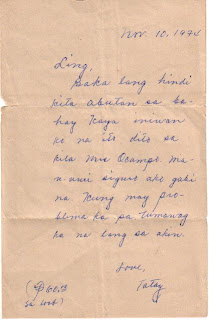 Nov. 10, 1974
Ling,
Baka lang hindi
kita abutan sa ba-
hay kaya iniwan
ko na ito dito sa
kila Mrs Ocampo. Ma-
u-uwi siguro ako gabi
na kung may pro-
blema ka pa tumawag
ka na lang sa akin.
Love,
Tatay